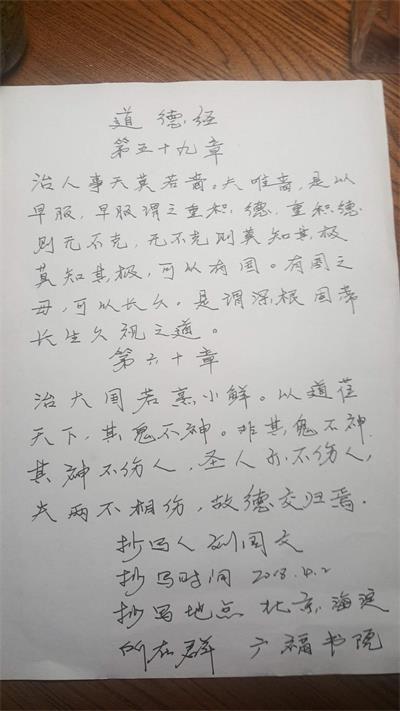 道德经
第五十九章
治人事天莫若啬。夫唯啬,是以
早服,早服谓之重积德,重积德
则无不克,无不克则莫知其极
莫知其极,可以有国。有国之
母,可以长久。是谓深根固蒂
长生久视之道。
第六十章
治大国若烹小鲜。以道莅
天下,其鬼不神。非其鬼不神
其神不伤人,圣人亦不伤人,
夫两不相伤,故德交归焉.
抄写人 刘国文
抄写时间 2018.4.2
抄写地点 北京,海淀
所在群 广福书院